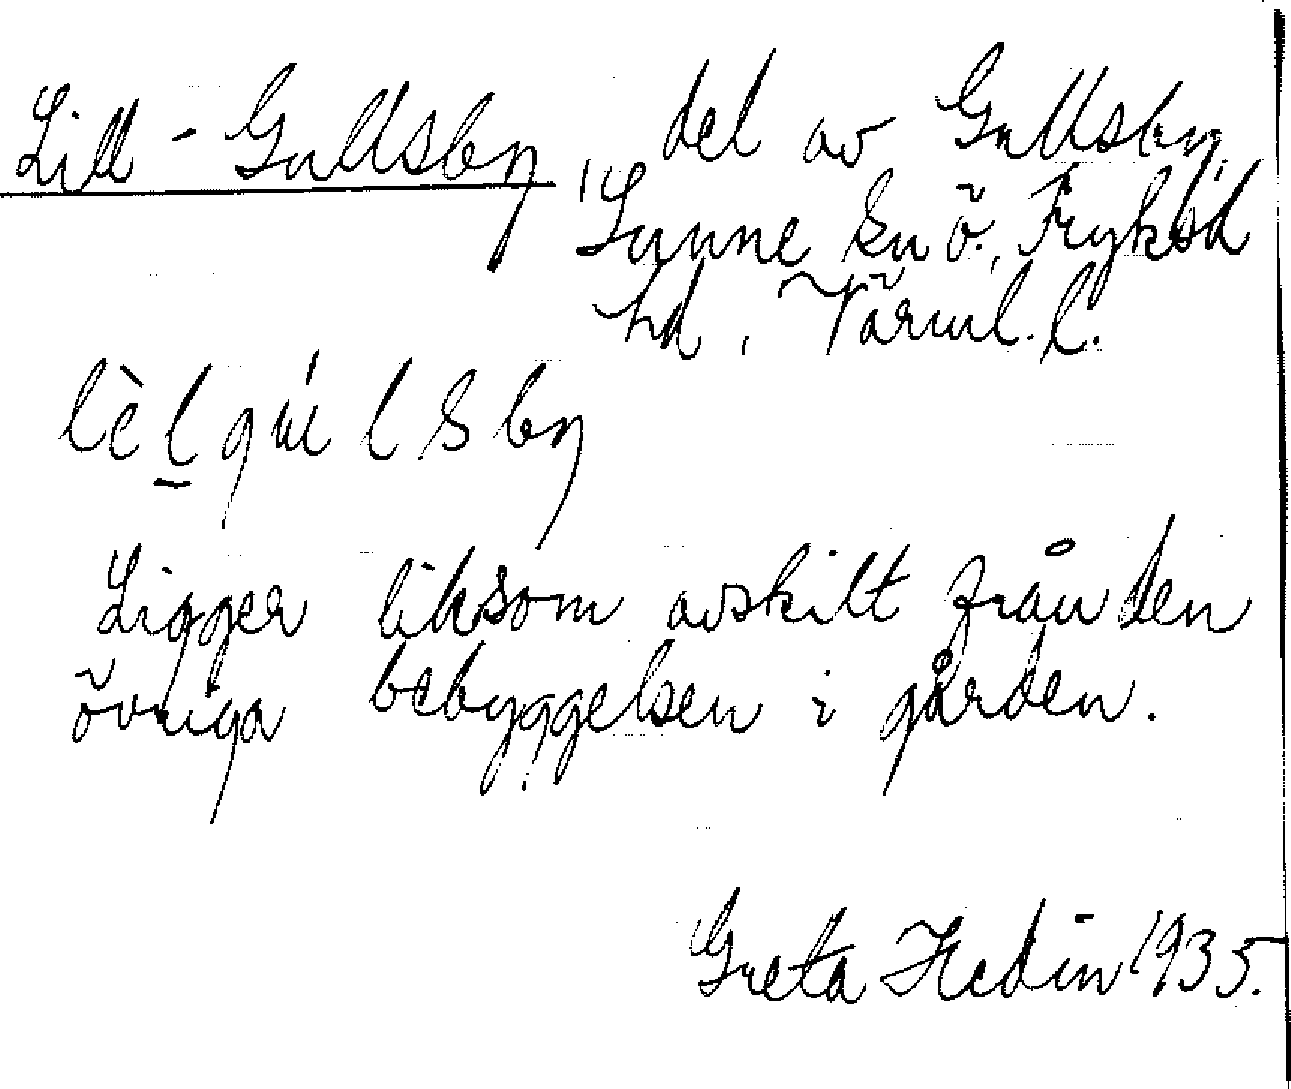 Lill-Gullsby, del av Gullsby,
Sunne sn ö., Fryksd
hd, Värml. l.
lèl gúlsby
Ligger liksom avskilt från den
övriga bebyggelsen i gården.
Greta Hedin 1935.